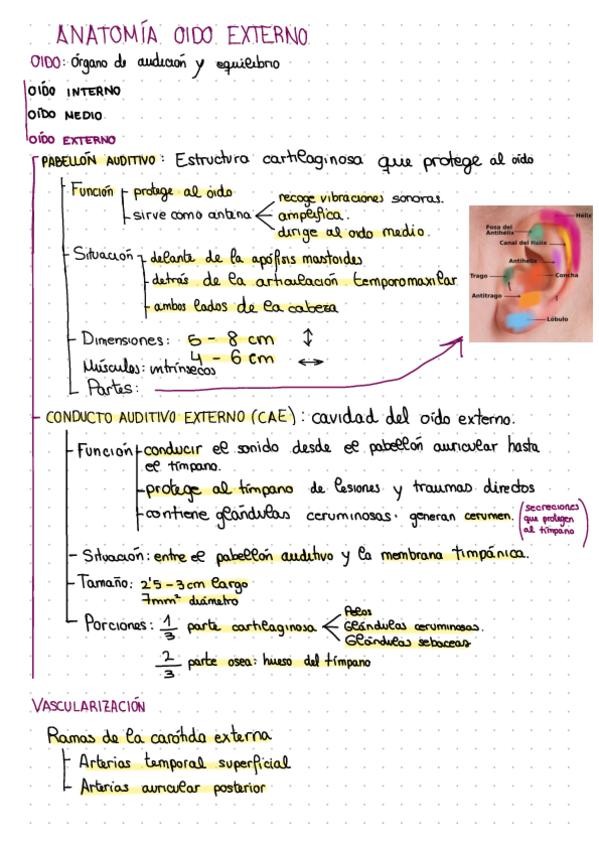 ANATOMÍA OIDO EXTERNO
OIDO: Órgano de audición y equilibrio
OÍDO INTERNO
OÍDO MEDIO
OÍDO EXTERNO
PABELLÓN AUDITIVO: Estructura cartilaginosa que protege al oído
Función protege al oído
sirve como antena
recoge vibraciones sonoras.
amplifica.
dirige al oido medio.
Situación delante de la apófisis mastoides
detrás de la articulación temporomaxilar
ambos lados de la cabeza
Dimensiones: 6 - 8 cm ↕
4 - 6 cm ↔
Músculos: intrínsecos
Partes:
Hélix
Fosa del
Antihélix
Canal del Hélix
Antihélix
Trago
Concha
Antitrago
Lóbulo
CONDUCTO AUDITIVO EXTERNO (CAE): cavidad del oído externo.
Función conducir el sonido desde el pabellón auricular hasta
el tímpano.
protege al tímpano de lesiones y traumas directos
contiene glándulas ceruminosas. generan cerumen. (secreciones
que protegen
al tímpano)
Situación: entre el pabellón auditivo y la membrana timpánica.
Tamaño: 2'5 - 3 cm largo
7mm² diámetro
Porciones: 1/3 parte cartilaginosa
Pelos
Glándulas ceruminosas.
Glándulas sebaceas
2/3 parte osea: hueso del tímpano
VASCULARIZACIÓN
Ramas de la carótida externa
Arterias temporal superficial
Arterias auricular posterior